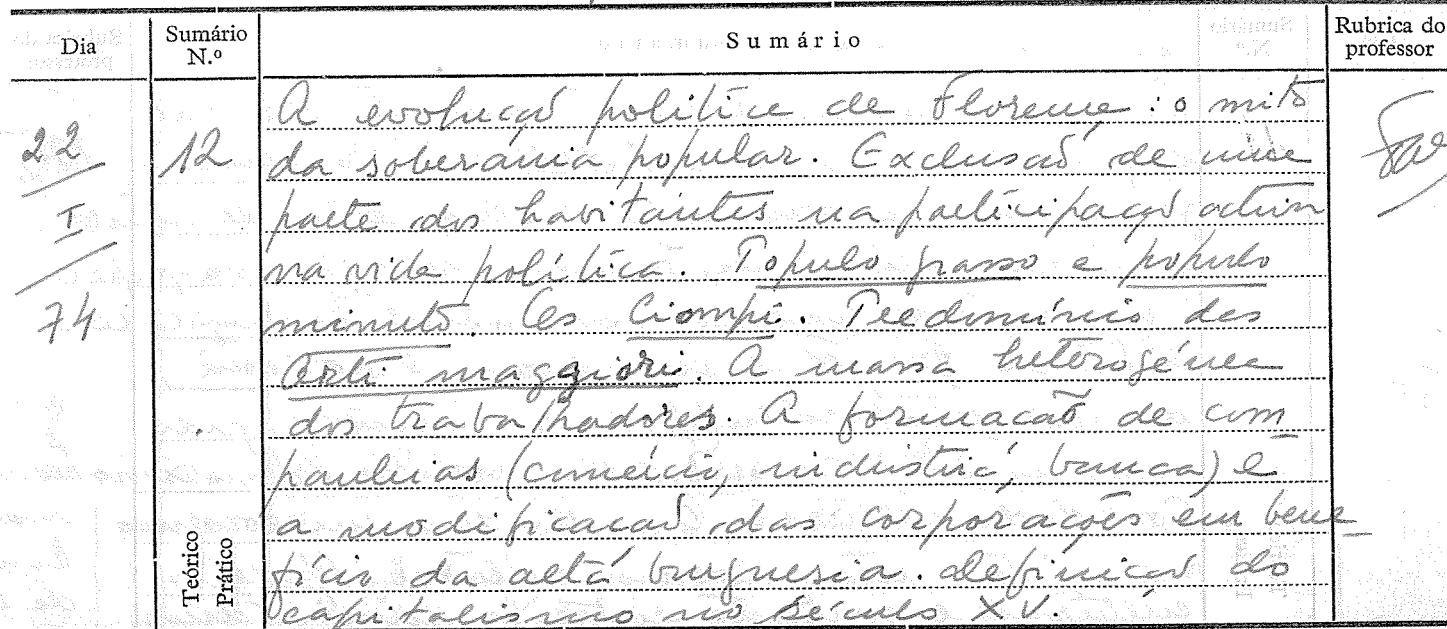 Dia
Sumário N.º
Sumário
Rubrica do professor
22
I
74
12
A evolução política de Florença: o mito
da soberania popular. Exclusão de uma
parte dos habitantes na participação activa
na vida política. Populo grasso e populo
minuto. Os Ciompi. Predomínio das
Arti maggiori. A massa heterogénea
dos trabalhadores. A formação de com
panhias (comércio, indústria, banca) e
a modificação das corporações em bene
fício da alta burguesia. definição do
capitalismo no século XV.
Teórico
Prático